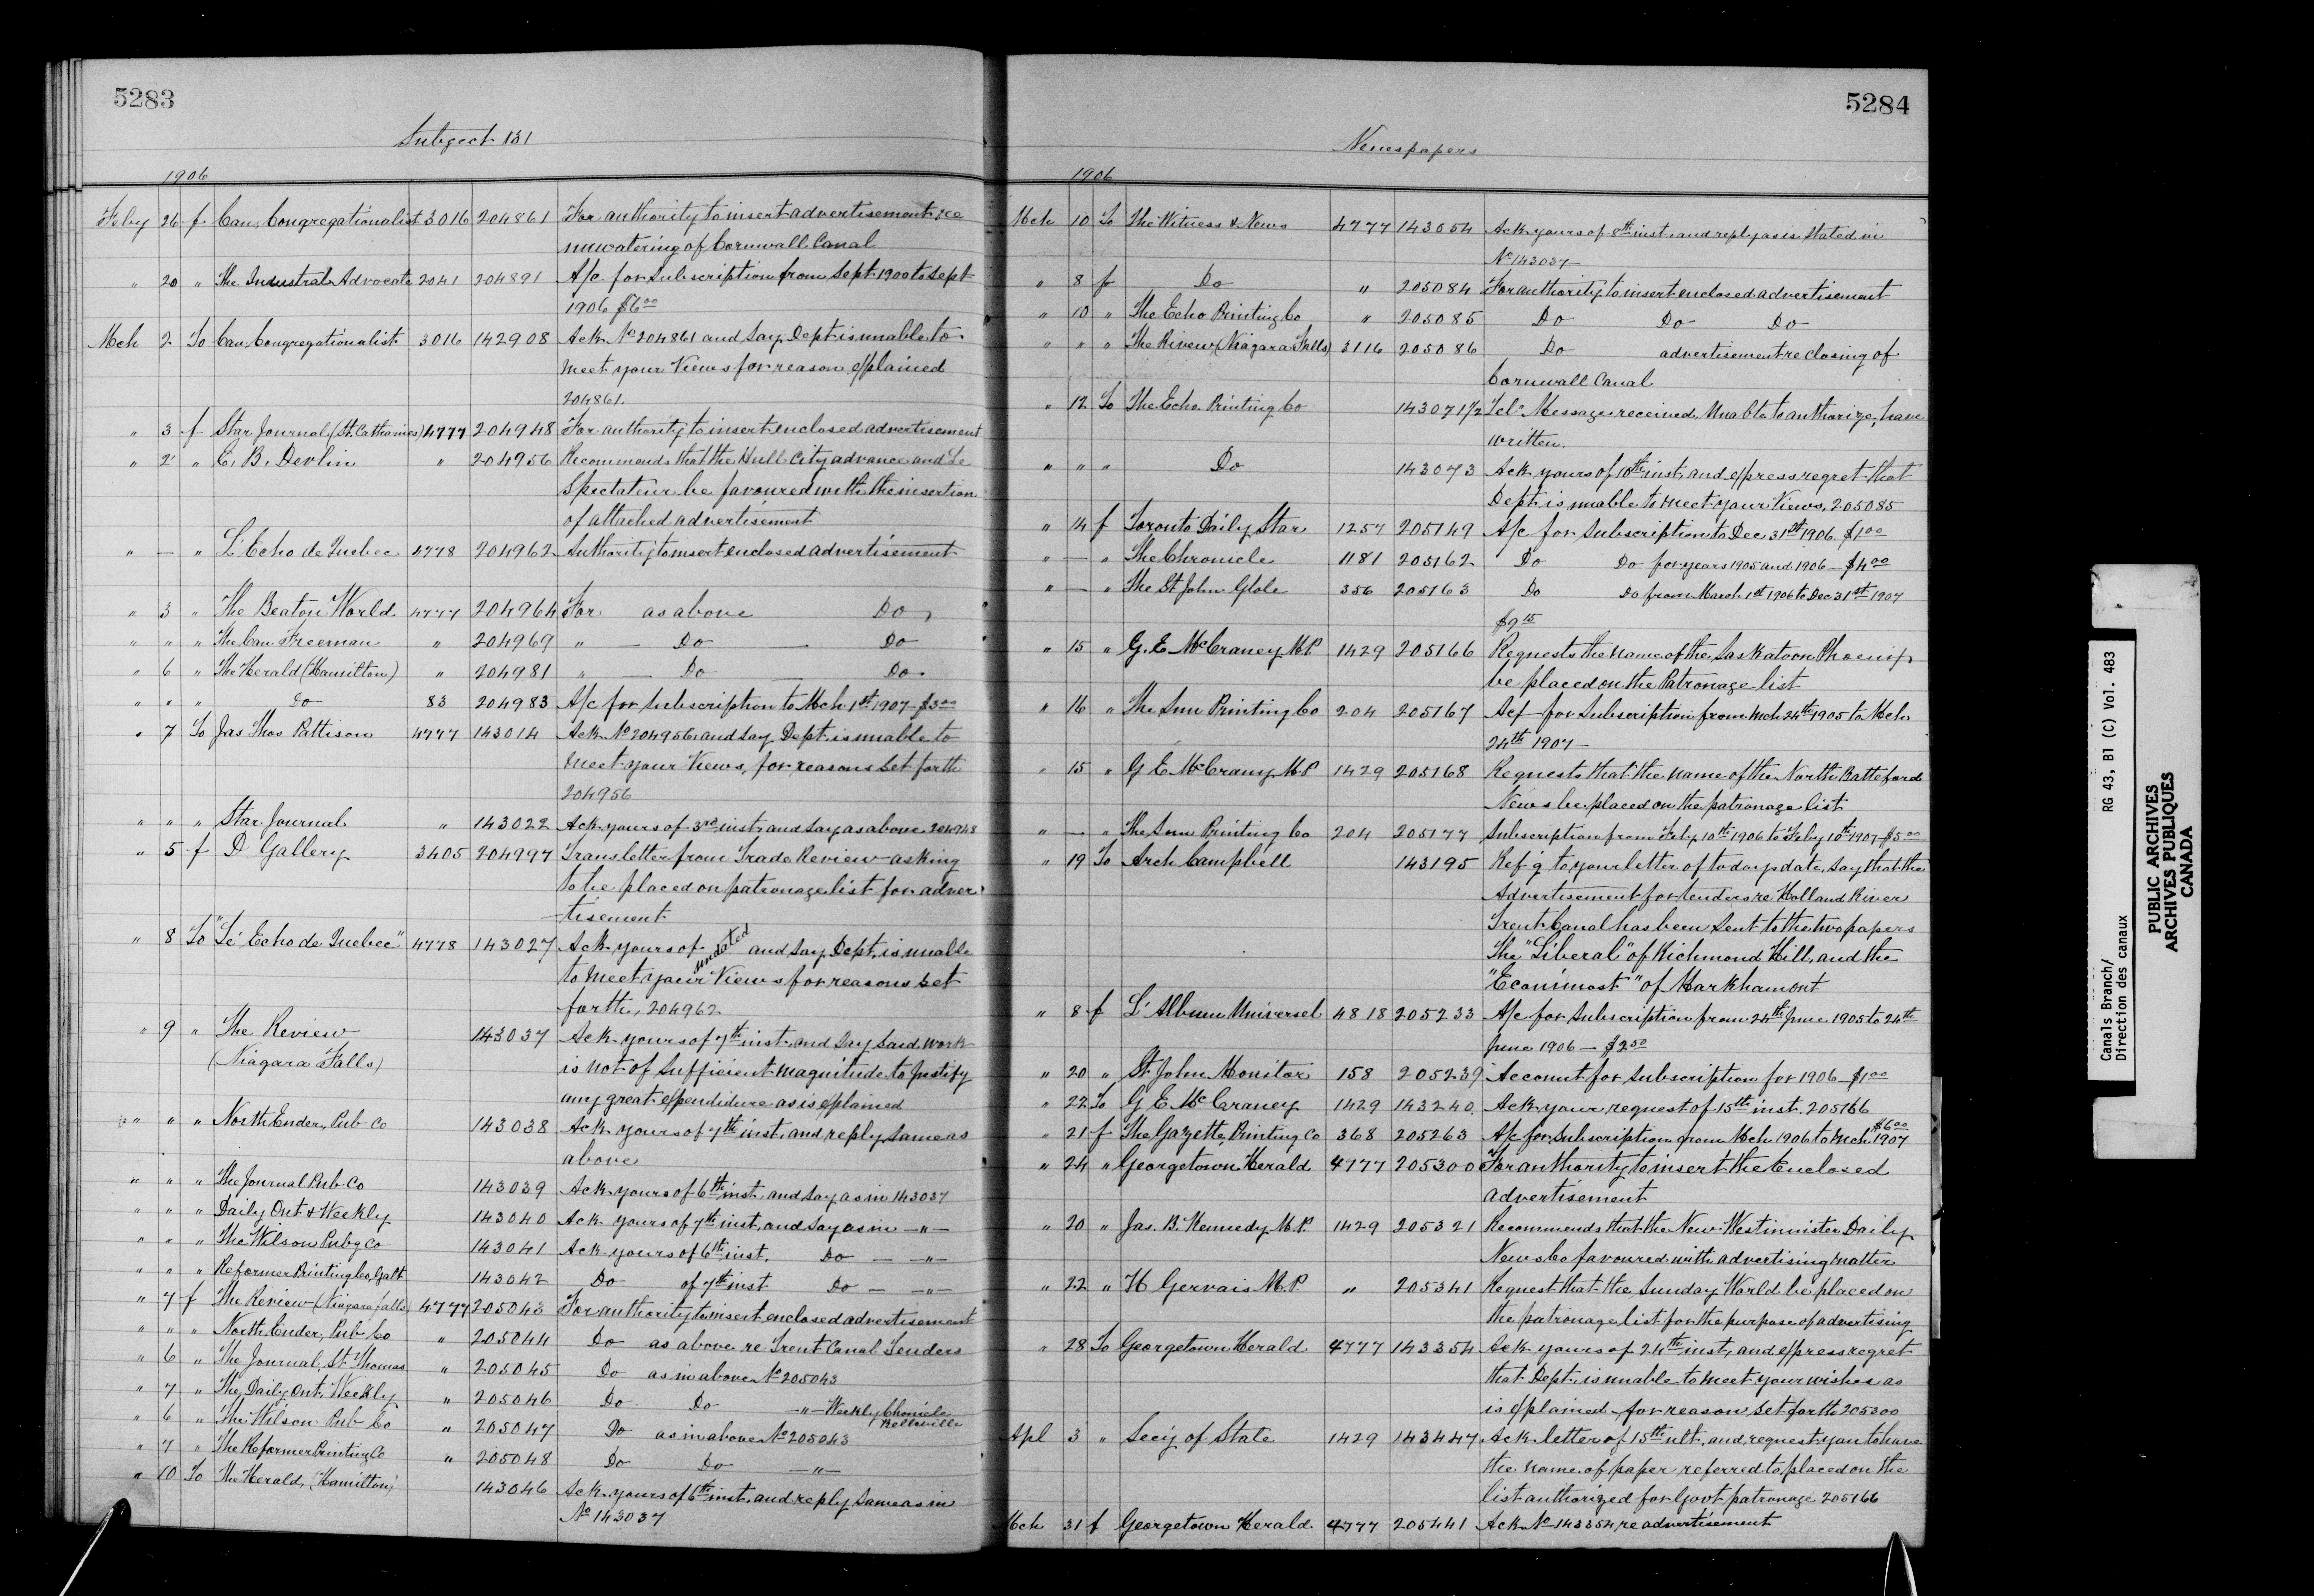 5283
Subject 131
1906
Feby 26 f Can. Congregationalist 3016 204861 For authority to insert advertisement re
unwatering of Cornwall Canal
" 20 " The Industral Advocate 2041 204891 A/c for Subscription from Sept 1900 to Sept
1906 $6.00
Mch 2 To Can. Congregationalist 3016 142908 Ack No 204861 and Say Dept is unable to
meet your Views for reason explained
204861.
" 3 f Star Journal (St. Catharines) 4777 204948 For authority to insert enclosed advertisement
" 2 " C. B. Devlin " 204956 Recommends that the Hull City advance and Le
Spectateur be favoured with the insertion
of attached advertisement
" — " L'Echo de Quebec 4778 204962 Authority to insert enclosed advertisement
" 3 " The Beaton World 4777 204964 For as above Do
" " " The Can Freeman " 204969 " — Do — Do
" 6 " The Herald (Hamilton) " 204981 " — Do — Do
" " " Do 83 204983 A/c for Subscription to Mch 1st 1907 - $3.00
" 7 To Jas Thos Pattison 4777 143014 Ack No 204956, and Say Dept. is unable to
meet your Views, for reasons Set forth
204956
" " " Star Journal " 143022 Ack yours of 3rd inst. and Say as above 204948
" 5 f D Gallery 3405 204997 Trans letter from Trade Review asking
to be placed on patronage list for adver
tisement
" 8 To "Le Echo de Quebec" 4778 143027 Ack yours of undated and Say Dept. is unable
to meet your Views for reasons set
forth, 204962
" 9 " The Review 143037 Ack yours of 7th inst. and Say Said work
(Niagara Falls) is not of Sufficient magnitude to Justify
any great expendidure as is explained
" " " North Ender, Pub Co 143038 Ack yours of 7th inst. and reply Same as
above
" " " The Journal Pub. Co 143039 Ack yours of 6th inst. and Say as in 143037
" " " Daily Ont & Weekly 143040 Ack yours of 7th inst. and Say as in — " —
" " " The Wilson Pubg Co 143041 Ack yours of 6th inst. Do — " —
" " " Reformer Printing Co, Galt 143042 Do of 7th inst Do — " —
" 7 f The Review (Niagara falls) 4777 205043 For authority to insert enclosed advertisement
" " " North Ender, Pub Co " 205044 Do as above re Trent Canal Tenders
" 6 " The Journal, St Thomas " 205045 Do as in above No 205043
" 7 " The Daily Ont. Weekly " 205046 Do Do — " — Weekly Chonicle
Bellville
" 6 " The Wilson Pub Co " 205047 Do as in above No 205043
" 7 " The Reformer Printing Co " 205048 Do Do — " —
" 10 To The Herald, (Hamilton) 143046 Ack yours of 6th inst. and reply Same as in
No 143037
5284
Newspapers
1906
Mch 10 To The Witness & News 4777 143054 Ack yours of 8th inst. and reply as is Stated in
No 143037
" 8 f Do " 205084 For authority to insert enclosed advertisement
" 10 " The Echo Printing Co " 205085 Do Do Do
" " " The Riview (Niagara Falls) 3116 205086 Do advertisement re closing of
Cornwall Canal
" 12 To The Echo Printing Co 143071 1/2 Tel. Message received. Unable to authorize, have
written.
" " " Do 143073 Ack yours of 10th inst. and express regret that
Dept. is unable to meet your Views, 205085
" 14 f Toronto Daily Star 1257 205149 A/c for Subscription to Dec. 31st 1906. $1.00
" — " The Chronicle 1181 205162 Do Do for years 1905 and 1906 — $4.00
" — " The St John Globe 356 205163 Do Do from March 1st 1906 to Dec 31st 1907
$9.15
" 15 " G. E. McCraney M.P. 1429 205166 Requests the name of the Saskatoon Phoenix
be placed on the Patronage list
" 16 " The Sun Printing Co 204 205167 Acf for Subscription from Mch 24th 1905 to Mch
24th 1907 —
" 15 " G E McCraney M.P 1429 205168 Requests that the name of the North Batteford
News be placed on the patronage list
" — " The Sun Printing Co 204 205177 Subscription from Feby 10th 1906 to Feby 10th 1907 - $5.00
" 19 To Arch Campbell 143195 Ref'g to your letter of todays date, say that the
Advertisement for tenders re Holland River
Trent Canal has been Sent to the two papers
The "Liberal" of Richmond Hill, and the
"Econimost" of Markhamont
" 8 f L'Album Universel 4818 205233 A/c for Subscription from 24th June 1905 to 24th
June 1906 — $2.50
" 20 " St John Monitor 158 205239 Account for Subscription for 1906 — $1.00
" 22 To G E McCraney 1429 143240 Ack your request of 15th inst. 205166
" 21 f The Gazette, Printing Co 368 205263 A/c for Subscription from Mch 1906 to Mch 1907 $6.00
" 24 " Georgetown Herald 4777 205300 For authority to insert the Enclosed
advertisement
" 20 " Jas. B. Kennedy M.P. 1429 205321 Recommends that the New Westminister Daily
News be favoured with advertising matter
" 22 " H Gervais M.P " 205341 Request that the Sunday World be placed on
the patronage list for the purpose of advertising
" 28 To Georgetown Herald 4777 143354 Ack yours of 24th inst. and express regret
that Dept. is unable to meet your wishes as
is explained for reason Set forth 205300
Apl 3 " Secy of State 1429 143447 Ack letter of 15th ult. and request you to have
the name of paper referred to placed on the
list authorized for Govt patronage 205166
Mch 31 f Georgetown Herald 4777 205441 Ack No 143354 re advertisement
Canals Branch/ RG 43, B1 (C) Vol. 483
Direction des canaux
PUBLIC ARCHIVES
ARCHIVES PUBLIQUES
CANADA